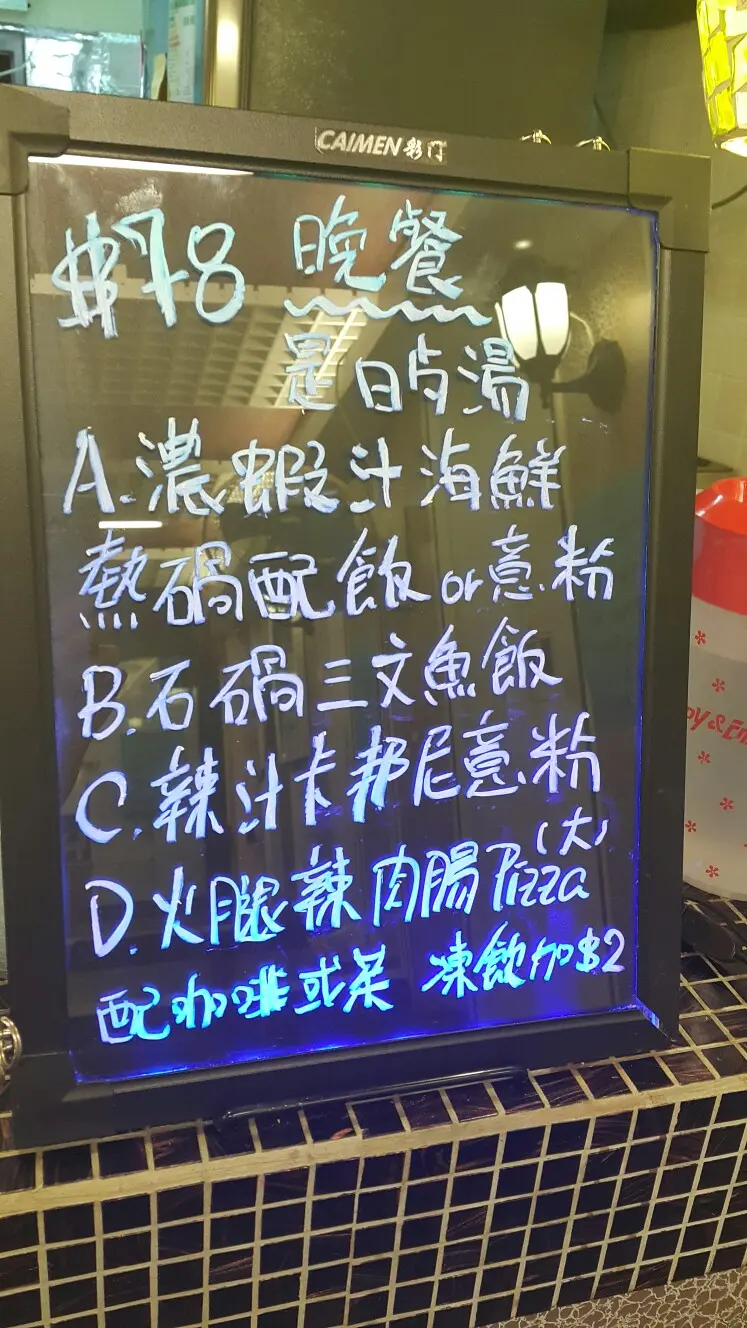 CAIMEN彩门
$78 晚餐
是日歺湯
A.濃蝦汁海鮮
熱碢配飯or意粉
B.石碢三文魚飯
C.辣汁卡邦尼意粉
D.火腿辣肉腸Pizza(大)
配咖啡或茶 凍飲加$2